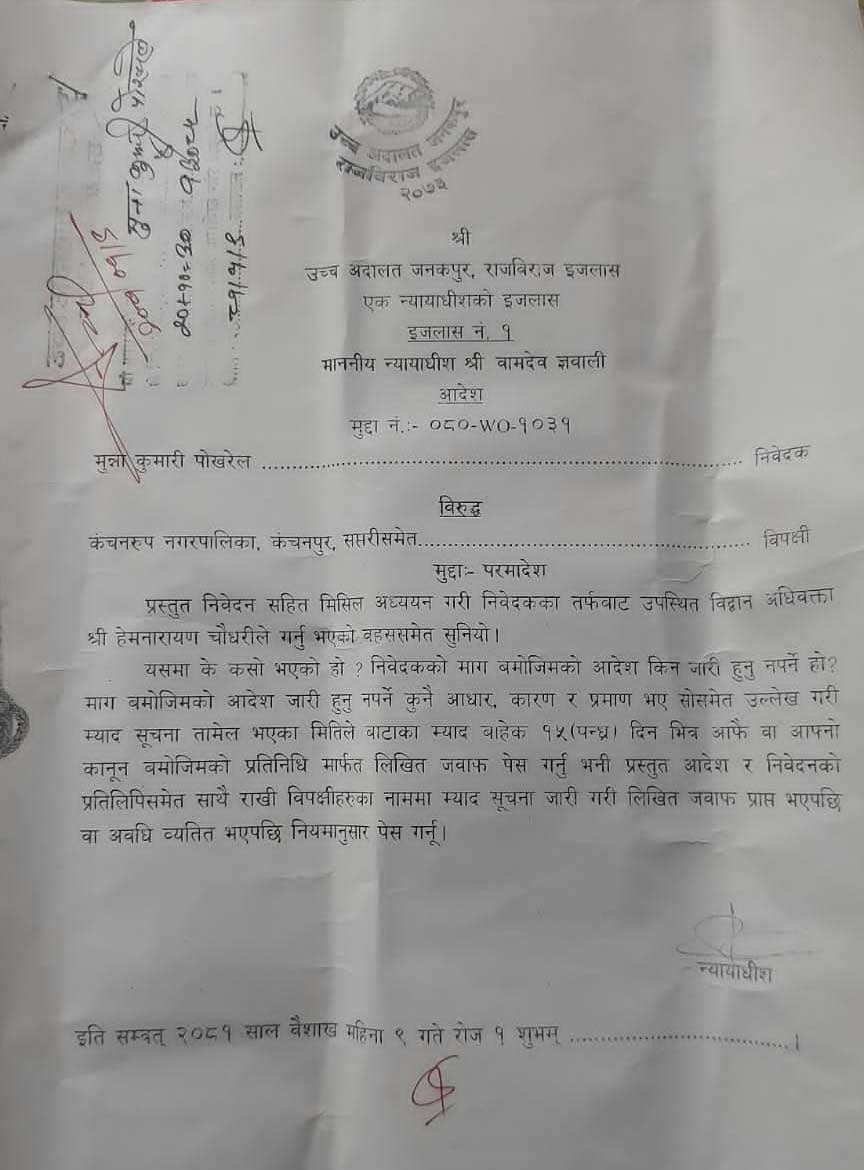 उच्च अदालत जनकपुर
राजविराज इजलास
२०७३
श्री
उच्च अदालत जनकपुर, राजविराज इजलास
एक न्यायाधीशको इजलास
इजलास नं. १
माननीय न्यायाधीश श्री वामदेव ज्ञवाली
आदेश
मुद्दा नं.:- ०८०-WO-१०३१
मुन्ना कुमारी पोखरेल ............................................................ निवेदक
विरुद्ध
कंचनरुप नगरपालिका, कंचनपुर, सप्तरीसमेत............................................ विपक्षी
मुद्दाः- परमादेश
प्रस्तुत निवेदन सहित मिसिल अध्ययन गरी निवेदकका तर्फवाट उपस्थित विद्वान अधिवक्ता
श्री हेमनारायण चौधरीले गर्नु भएको वहससमेत सुनियो।
यसमा के कसो भएको हो ? निवेदकको माग बमोजिमको आदेश किन जारी हुनु नपर्ने हो?
माग बमोजिमको आदेश जारी हुनु नपर्ने कुनै आधार, कारण र प्रमाण भए सोसमेत उल्लेख गरी
म्याद सूचना तामेल भएका मितिले वाटाका म्याद बाहेक १५(पन्ध्र) दिन भित्र आफै वा आफ्नो
कानून बमोजिमको प्रतिनिधि मार्फत लिखित जवाफ पेस गर्नु भनी प्रस्तुत आदेश र निवेदनको
प्रतिलिपिसमेत साथै राखी विपक्षीहरुका नाममा म्याद सूचना जारी गरी लिखित जवाफ प्राप्त भएपछि
वा अवधि व्यतित भएपछि नियमानुसार पेस गर्नू।
न्यायाधीश
इति सम्वत् २०८१ साल वैशाख महिना ९ गते रोज १ शुभम् .....................................।